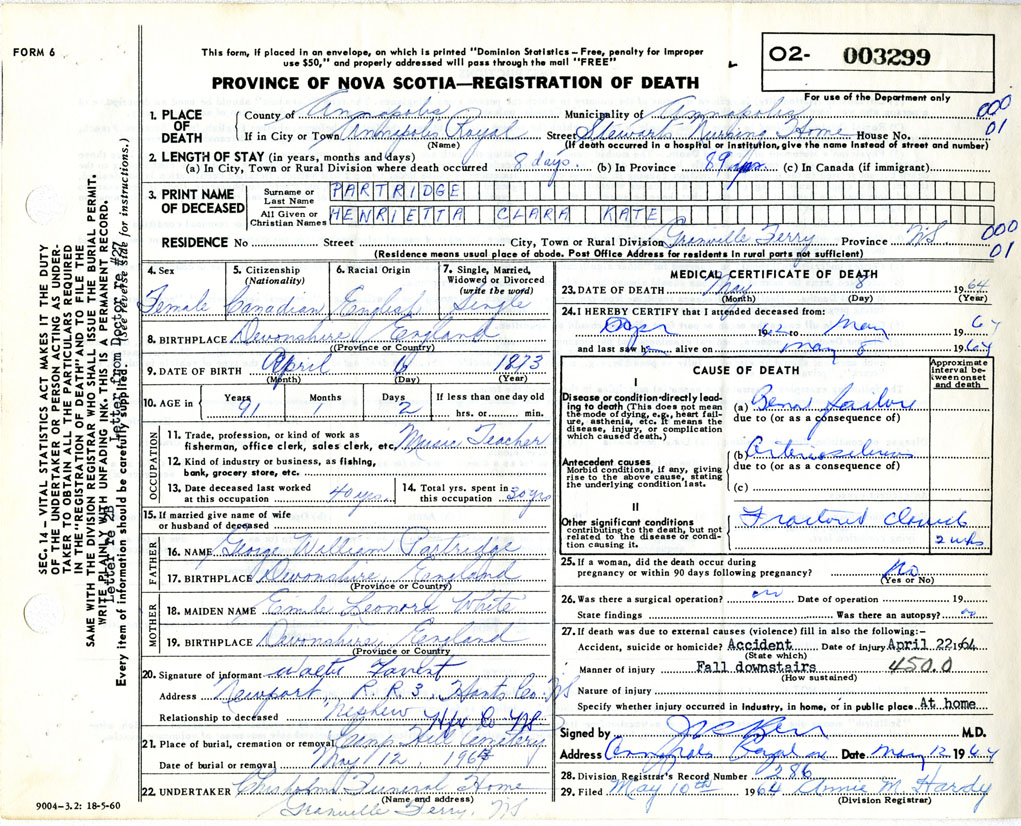 FORM 6
This form, if placed in an envelope, on which is printed "Dominion Statistics – Free, penalty for improper
use $50," and properly addressed will pass through the mail "FREE"
PROVINCE OF NOVA SCOTIA—REGISTRATION OF DEATH
02- 003299
For use of the Department only
SEC. 14 – VITAL STATISTICS ACT MAKES IT THE DUTY
OF THE UNDERTAKER OR PERSON ACTING AS UNDER-
TAKER TO OBTAIN ALL THE PARTICULARS REQUIRED
IN THE "REGISTRATION OF DEATH" AND TO FILE THE
SAME WITH THE DIVISION REGISTRAR WHO SHALL ISSUE THE BURIAL PERMIT.
WRITE PLAINLY WITH UNFADING INK. THIS IS A PERMANENT RECORD.
Every item of information should be carefully supplied. (See reverse side for instructions.)
Letter from Doctor re #27
1. PLACE OF DEATH
County of Annapolis Municipality of Annapolis 000
If in City or Town Annapolis Royal Street Stewarts Nursing Home House No. 01
(Name) (If death occurred in a hospital or institution, give the name instead of street and number)
2. LENGTH OF STAY (in years, months and days)
(a) In City, Town or Rural Division where death occurred 8 days. (b) In Province 89 yrs. (c) In Canada (if immigrant)
3. PRINT NAME OF DECEASED
Surname or Last Name PARTRIDGE
All Given or Christian Names HENRIETTA CLARA KATE
RESIDENCE No Street City, Town or Rural Division Granville Ferry Province NS 000 01
(Residence means usual place of abode. Post Office Address for residents in rural parts not sufficient)
4. Sex Female
5. Citizenship (Nationality) Canadian
6. Racial Origin English
7. Single, Married, Widowed or Divorced (write the word) Single
8. BIRTHPLACE Devonshire England
(Province or Country)
9. DATE OF BIRTH April 6 1873
(Month) (Day) (Year)
10. AGE in Years 91 Months 1 Days 2 If less than one day old hrs. or min.
OCCUPATION
11. Trade, profession, or kind of work as fisherman, office clerk, sales clerk, etc. Music Teacher
12. Kind of industry or business, as fishing, bank, grocery store, etc.
13. Date deceased last worked at this occupation 40 yrs.
14. Total yrs. spent in this occupation 30 yrs
15. If married give name of wife or husband of deceased
FATHER
16. NAME George William Partridge
17. BIRTHPLACE Devonshire England
(Province or Country)
MOTHER
18. MAIDEN NAME Emile Leonora White
19. BIRTHPLACE Devonshire England
(Province or Country)
20. Signature of informant
Address Newport R.R 3. Hants Co. NS
Relationship to deceased Nephew
21. Place of burial, cremation or removal Cemetery
Date of burial or removal May 12 1964
22. UNDERTAKER Chisholm Funeral Home
(Name and address)
Granville Ferry, NS
9004–3.2: 18-5-60
MEDICAL CERTIFICATE OF DEATH
23. DATE OF DEATH May 8 1964
(Month) (Day) (Year)
24. I HEREBY CERTIFY that I attended deceased from:
1962 to May 1964
and last saw h alive on May 8 1964
CAUSE OF DEATH
Approximate interval between onset and death
I
Disease or condition directly leading to death (This does not mean the mode of dying, e.g., heart failure, asthenia, etc. It means the disease, injury, or complication which caused death.)
(a) Renal failure
due to (or as a consequence of)
Antecedent causes
Morbid conditions, if any, giving rise to the above cause, stating the underlying condition last.
(b) Arteriosclerosis
due to (or as a consequence of)
(c)
II
Other significant conditions contributing to the death, but not related to the disease or condition causing it.
Fractured 2 wks
25. If a woman, did the death occur during pregnancy or within 90 days following pregnancy? No
(Yes or No)
26. Was there a surgical operation? no Date of operation 19
State findings Was there an autopsy? no
27. If death was due to external causes (violence) fill in also the following:–
Accident, suicide or homicide? Accident Date of injury April 22 1964
(State which)
Manner of injury Fall downstairs 450.0
(How sustained)
Nature of injury
Specify whether injury occurred in industry, in home, or in public place At home
Signed by Kerr M.D.
Address Annapolis Royal Date May 12 1964
28. Division Registrar's Record Number 286
29. Filed May 10th 1964 Annie M. Hardy
(Division Registrar)